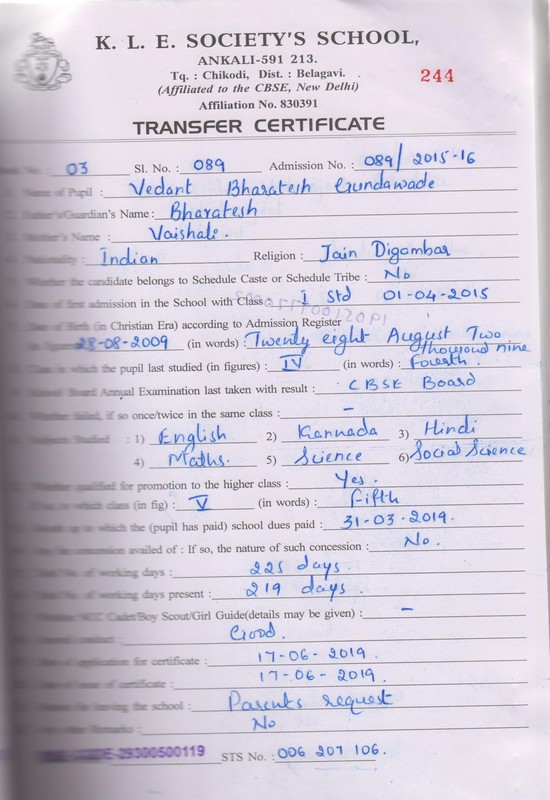 K. L. E. SOCIETY'S SCHOOL,
ANKALI-591 213.
Tq. : Chikodi, Dist. : Belagavi.
(Affiliated to the CBSE, New Delhi)
244
Affiliation No. 830391
TRANSFER CERTIFICATE
03 Sl. No. : 089 Admission No. : 089/2015-16
Name of Pupil : Vedant Bharatesh Gundawade
Father's/Guardian's Name : Bharatesh
Mother's Name : Vaishali.
Nationality : Indian Religion : Jain Digambar
Whether the candidate belongs to Schedule Caste or Schedule Tribe : No
Date of first admission in the School with Class : I Std 01-04-2015
Date of Birth (in Christian Era) according to Admission Register
28-08-2009 (in words) : Twenty eight August Two thousand nine
Class in which the pupil last studied (in figures) : IV (in words) : Fourth.
Board Annual Examination last taken with result : CBSE Board
Whether failed, if so once/twice in the same class : –
Studied : 1) English 2) Kannada 3) Hindi
4) Maths. 5) Science 6) Social Science
Whether qualified for promotion to the higher class : Yes.
in which class (in fig) : V (in words) : Fifth
which the (pupil has paid) school dues paid : 31-03-2019.
concession availed of : If so, the nature of such concession : No.
No. of working days : 225 days.
No. of working days present : 219 days.
NCC Cadet/Boy Scout/Girl Guide(details may be given) : –
Good.
of application for certificate : 17-06-2019
of certificate : 17-06-2019.
leaving the school : Parents request
Remarks : No
-29300500119 STS No. : 006 207 106.